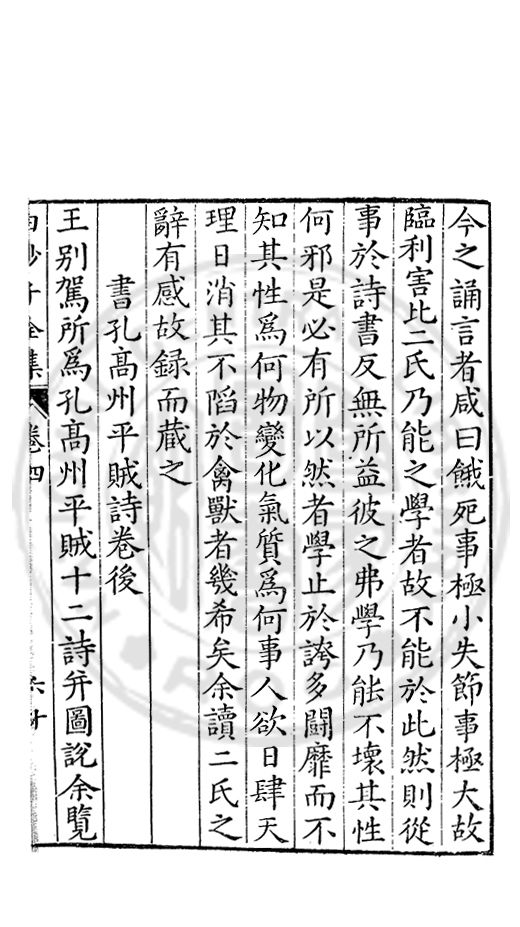 今之誦言者咸曰餓死事極小失節事極大故
臨利害比二氏乃能之學者故不能於此然則從
事於詩書反無所益彼之弗學乃能不壞其性
何邪是必有所以然者學止於誇多鬪靡而不
知其性為何物變化氣質為何事人欲日肆天
理日消其不䧟於禽獸者幾希矣余讀二氏之
辭有感故録而蔵之
書孔髙州平賊詩卷後
王别駕所為孔髙州平賊十二詩并圖説余覽
白沙子全集
卷四